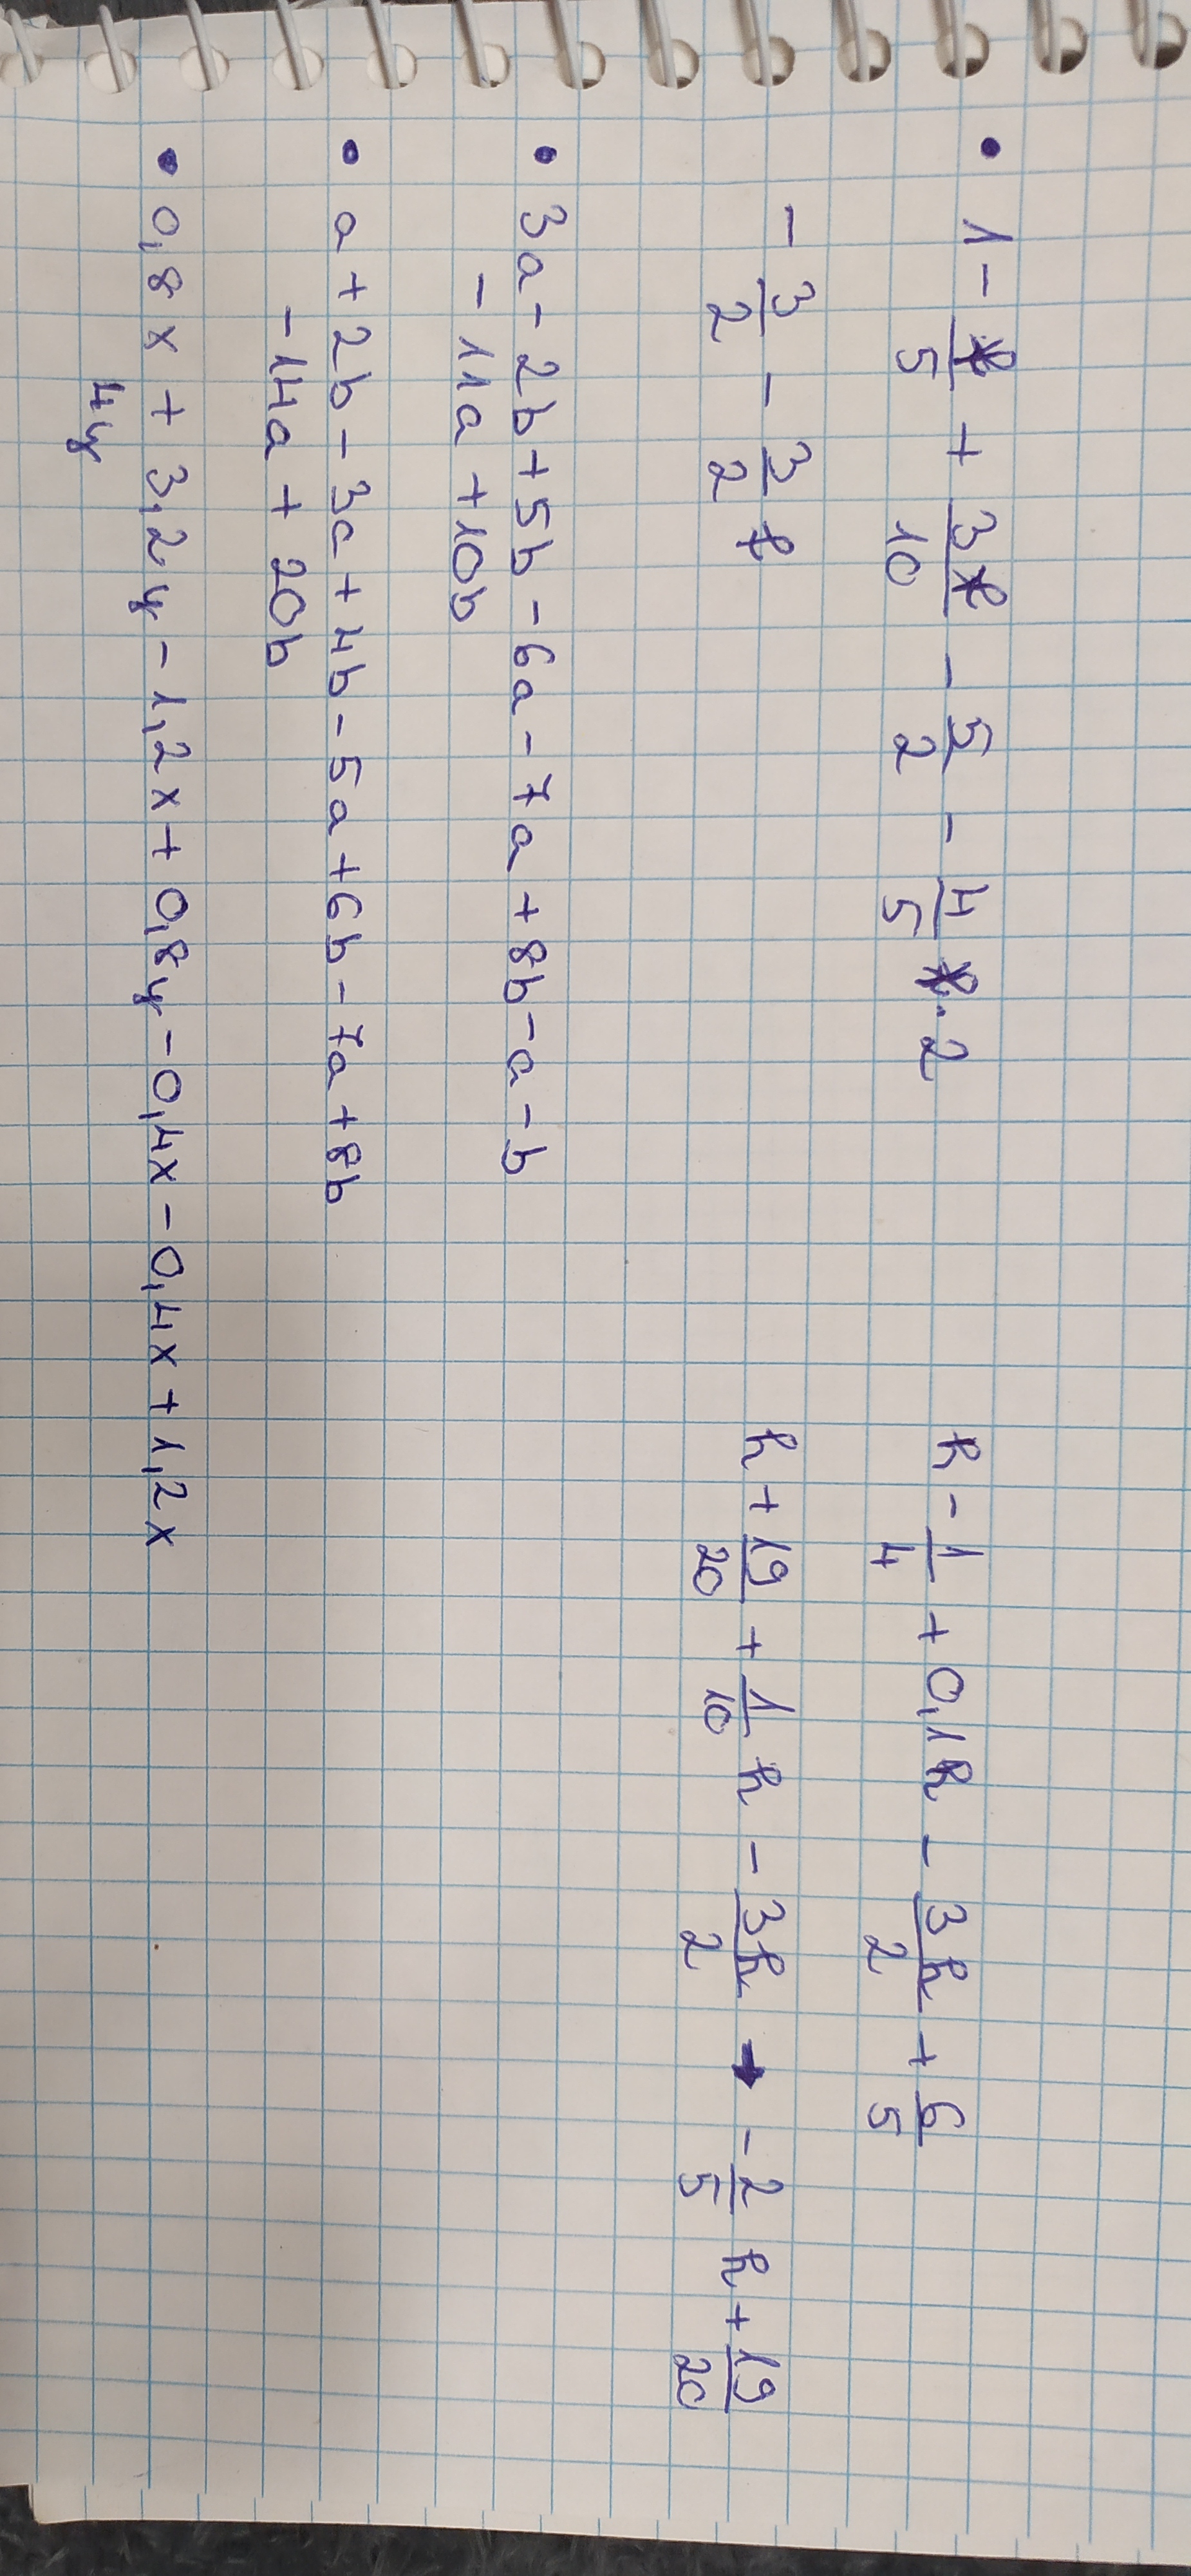 • 1 - ℓ/5 + 3ℓ/10 - 5/2 - 4/5 ℓ·2
- 3/2 - 3/2 ℓ
k - 1/4 + 0,1k - 3k/2 + 6/5
k + 19/20 + 1/10 k - 3k/2 → - 2/5 k + 19/20
• 3a - 2b + 5b - 6a - 7a + 8b - a - b
- 11a + 10b
• a + 2b - 3a + 4b - 5a + 6b - 7a + 8b
- 14a + 20b
• 0,8x + 3,2y - 1,2x + 0,8y - 0,4x - 0,4x + 1,2x
4y